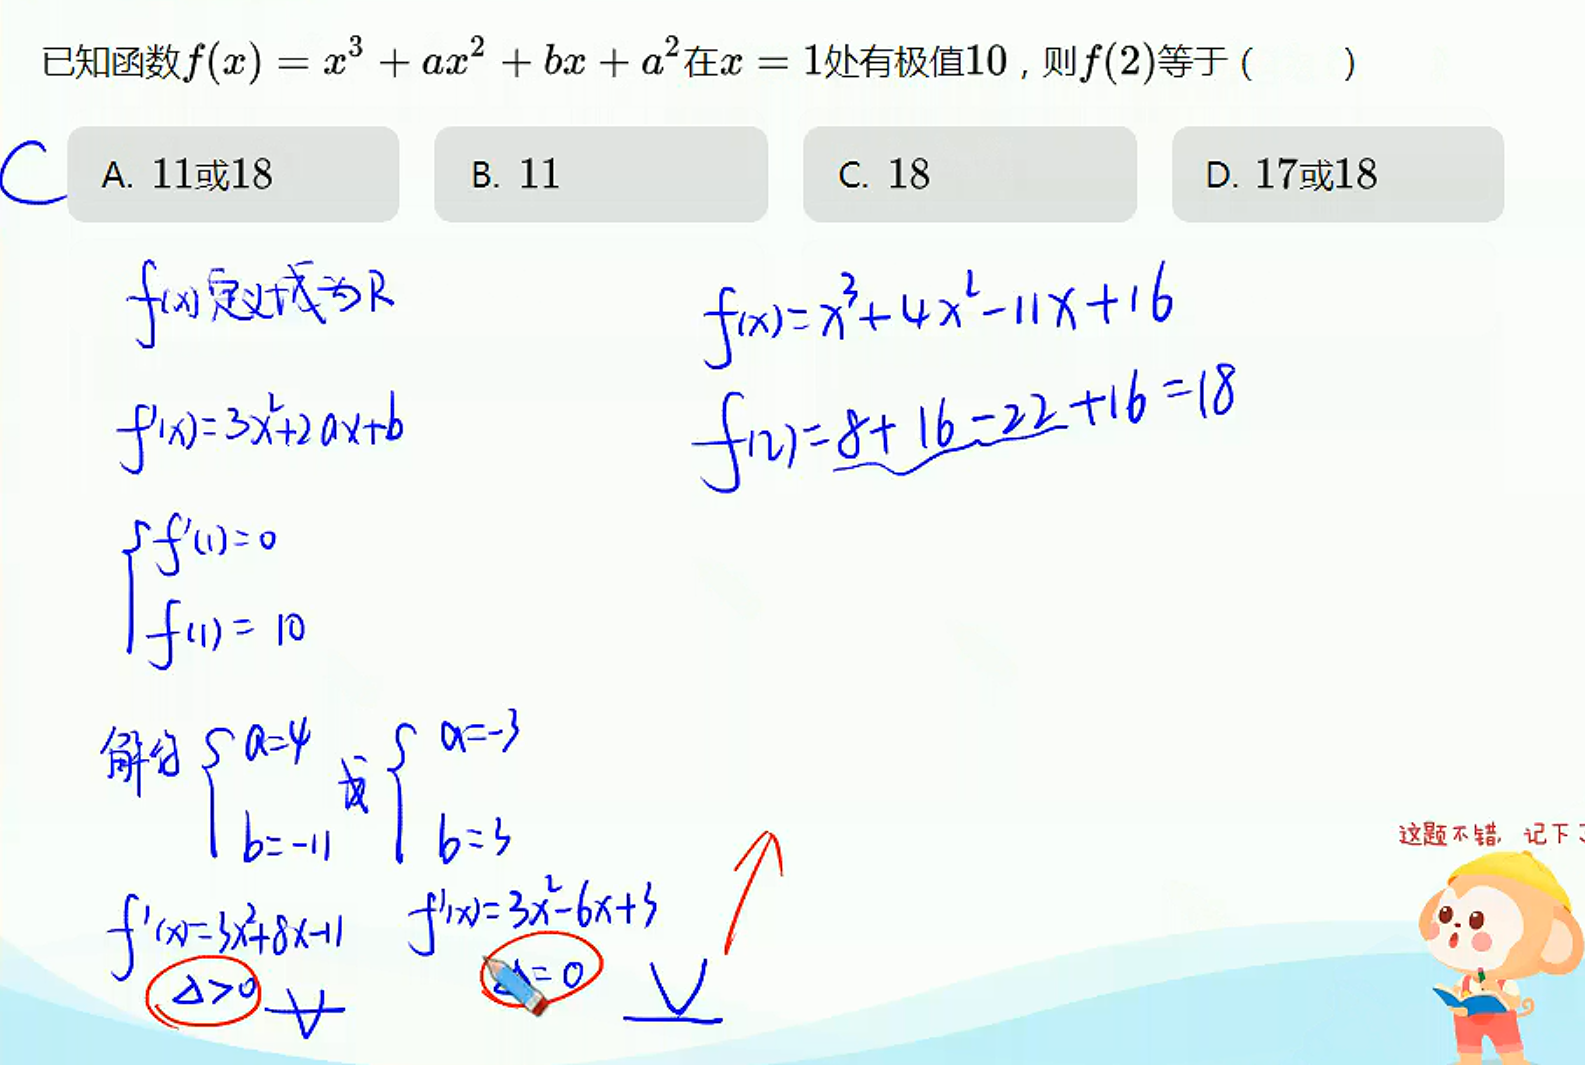 已知函数f(x) = x³ + ax² + bx + a²在x = 1处有极值10，则f(2)等于（  ）
C
A. 11或18
B. 11
C. 18
D. 17或18
f(x)定义域为R
f'(x)=3x²+2ax+b
{f'(1)=0
f(1)=10
解得 {a=4 b=-11 或 {a=-3 b=3
f'(x)=3x²+8x-11
Δ>0
f'(x)=3x²-6x+3
Δ=0
f(x)=x³+4x²-11x+16
f(2)=8+16-22+16=18
这题不错，记下了